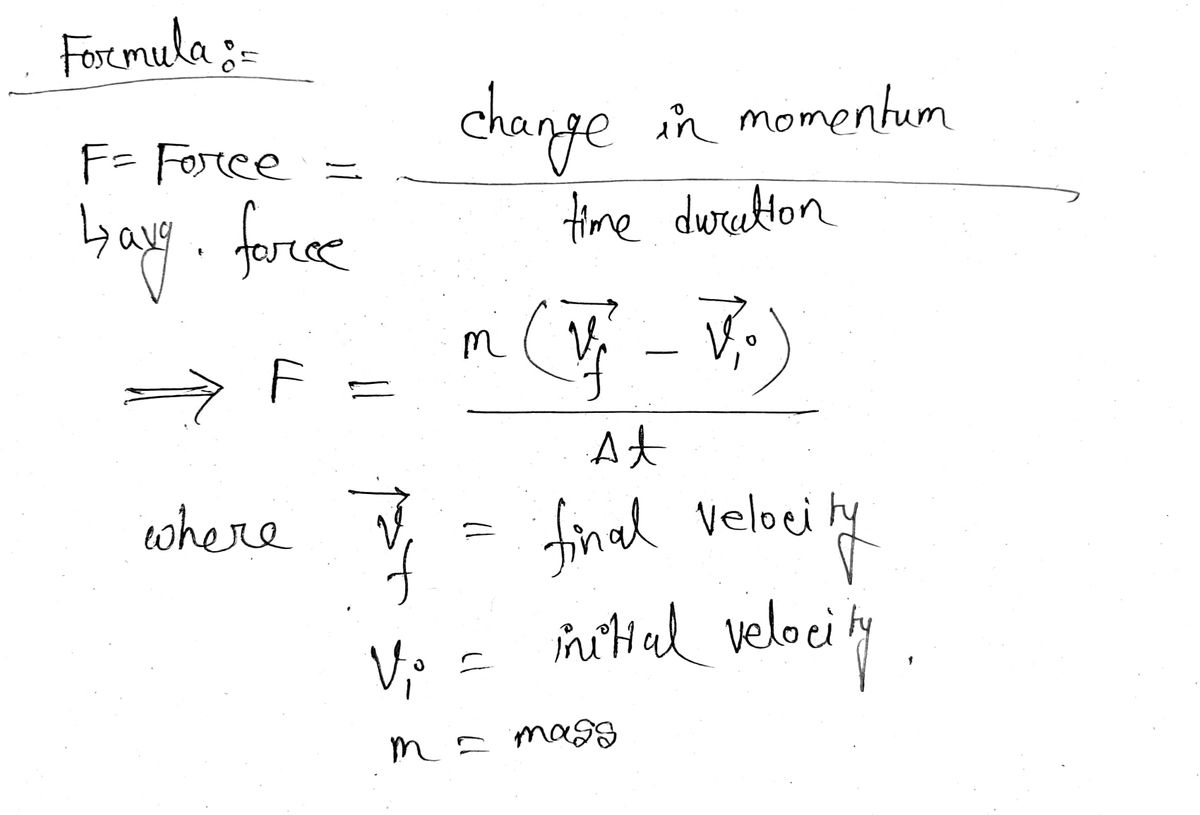 Formula :=
F = Force = change in momentum / time duration
↳ avg. force
⟹ F = m (v⃗f − v⃗i) / Δt
where v⃗f = final velocity
vi = initial velocity.
m = mass